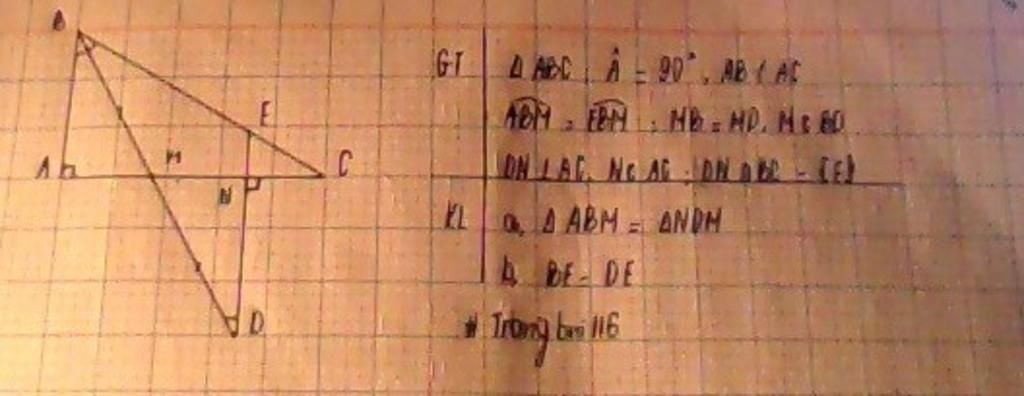 B
E
A M N C
D
GT
Δ ABC, Â = 90°, AB < AC
ABM = EBM ; MB = MD, M ∈ BD
DN ⊥ AC, N ∈ AC ; DN ∩ BC = {E}
KL
a, Δ ABM = ΔNDM
b, BE = DE
# Trang bài 116